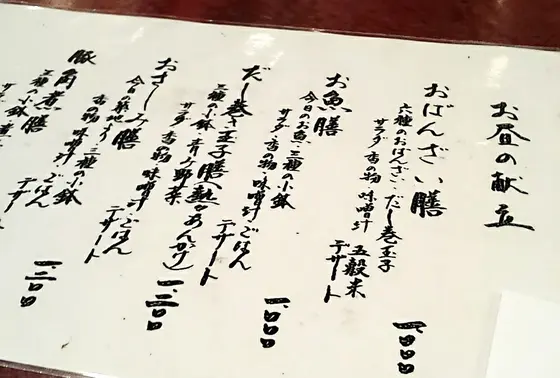 お昼の献立
おばんざい膳
六種のおばんざい・だし巻玉子
サラダ 香の物・味噌汁 五穀米
デザート
一、〇〇〇
お魚膳
今日のお魚・三種の小鉢
サラダ 香の物・味噌汁・ごはん
デザート
一、〇〇〇
だし巻き玉子膳(熱々あんかけ)
三種の小鉢 青み野菜
サラダ 香の物・味噌汁・ごはん
デザート
一、三〇〇
おさしみ膳
今日の築地より 三種の小鉢
香の物・味噌汁 ごはん
デザート
一、三〇〇
豚角煮膳
三種の小鉢
サラダ